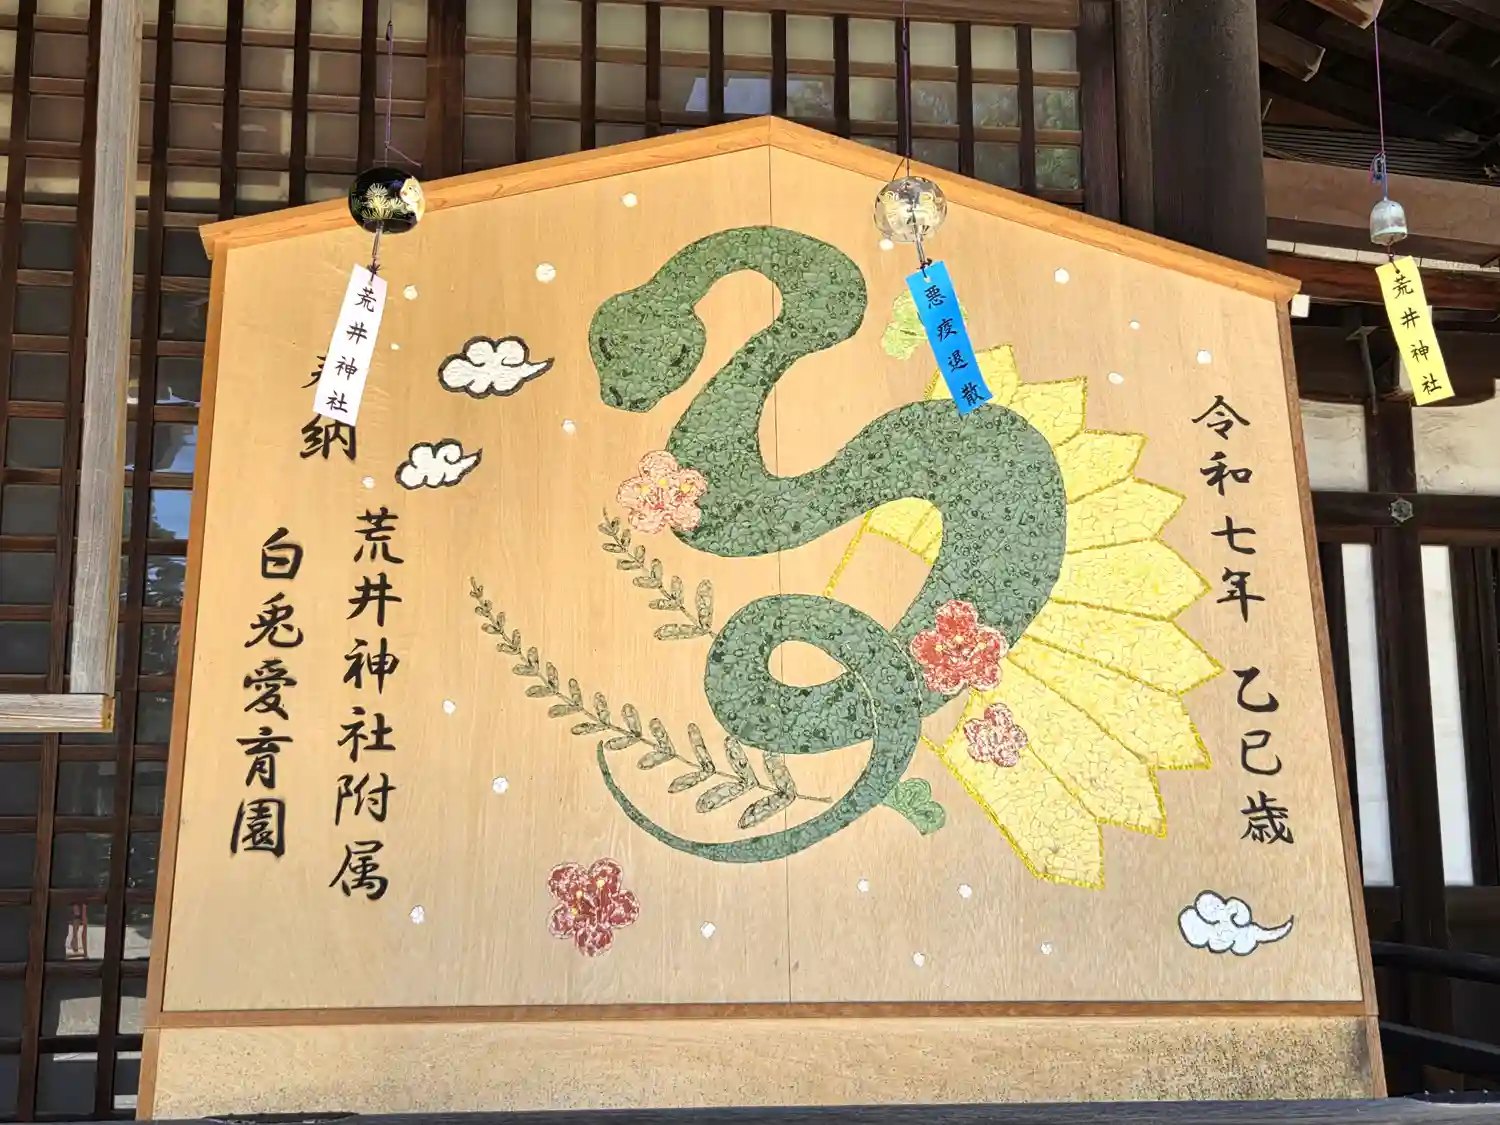 令和七年 乙巳歳
奉納
荒井神社附属
白兎愛育園
荒井神社
悪疫退散
荒井神社